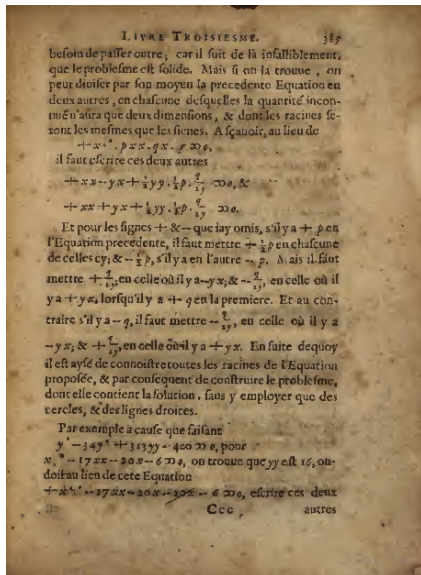 LIVRE TROISIESME. 385
besoin de passer outre, car il suit de là infalliblement,
que le problesme est solide. Mais si on la trouue, on
peut diuiser par son moyen la precedente Equation en
deux autres, en chascune desquelles la quantité incon-
nuë n'aura que deux dimensions, & dont les racines se-
ront les mesmes que les sienes. A sçauoir, au lieu de
+ x⁴ *. pxx. qx. r ∞ 0,
il faut escrire ces deux autres
+ xx -- yx + ½yy. ½p. q/2y ∞ 0, &
+ xx + yx + ½yy. ½p. q/2y ∞ 0.
Et pour les signes + & -- que iay omis, s'il y a + p en
l'Equation precedente, il faut mettre + ½p en chascune
de celles cy; & -- ½p, s'il y a en l'autre -- p. Mais il faut
mettre + q/2y, en celle où il y a -- yx; & -- q/2y, en celle où il
y a + yx, lorsqu'il y a + q en la premiere. Et au con-
traire s'il y a -- q, il faut mettre -- q/2y, en celle où il y a
-- yx; & + q/2y, en celle où il y a + yx. En suite dequoy
il est aysé de connoistre toutes les racines de l'Equation
proposée, & par consequent de construire le problesme,
dont elle contient la solution, sans y employer que des
cercles, & des lignes droites.
Par exemple à cause que faisant
y⁶ -- 34y⁴ + 313yy -- 400 ∞ 0, pour
x⁴ * -- 17xx -- 20x -- 6 ∞ 0, on trouue que yy est 16, on
doit au lieu de cete Equation
+ x⁴ * -- 17xx -- 20x -- 6 ∞ 0, escrire ces deux
Ccc autres